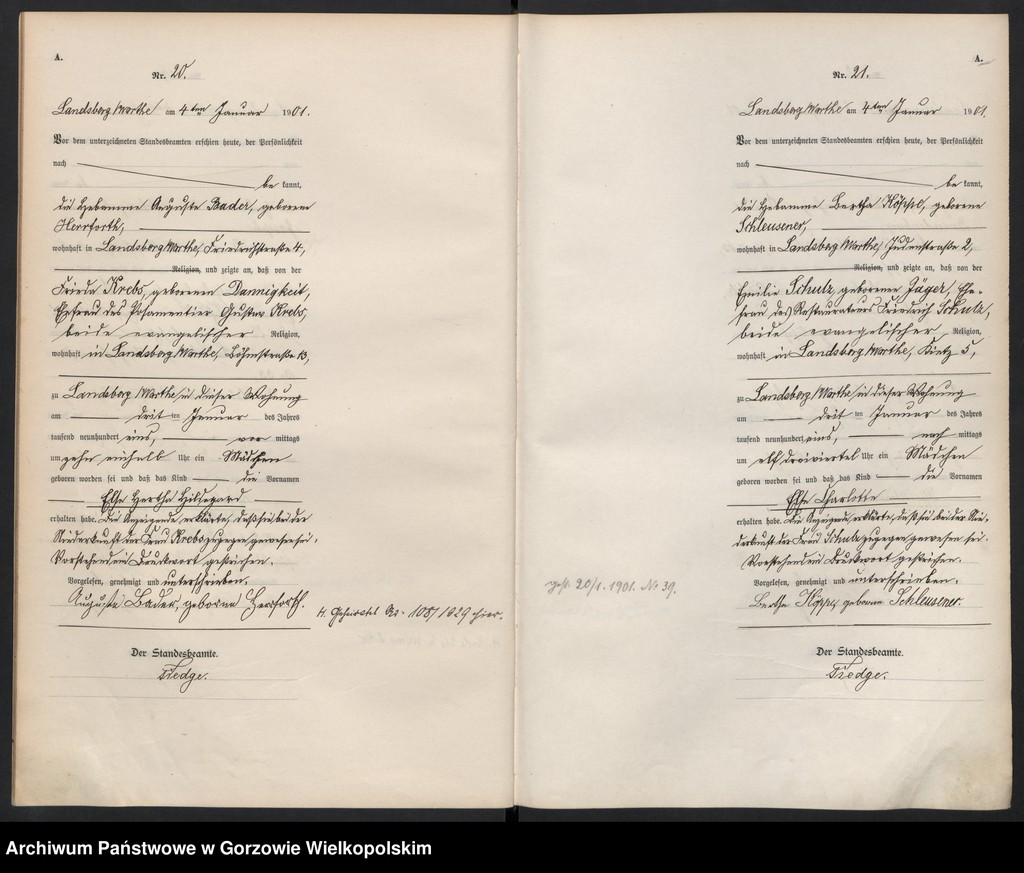 A.
Nr. 20.
Landsberg /Warthe am 4ten Januar 1901.
Vor dem unterzeichneten Standesbeamten erschien heute, der Persönlichkeit
nach
be kannt,
die Hebamme Auguste Bader, geborene
Herrforth,
wohnhaft in Landsberg /Warthe, Friedrichstraße 4,
Religion, und zeigte an, daß von der
Frieda Krebs, geborenen Dannigkeit,
Ehefrau des Posamentier Gustav Krebs,
beide evangelischer Religion,
wohnhaft in Landsberg /Warthe, Böhmstraße 13,
zu Landsberg /Warthe in dieser Wohnung
am dritten Januar des Jahres
tausend neunhundert eins, vor mittags
um zehn einhalb Uhr ein Mädchen
geboren worden sei und daß das Kind die Vornamen
Else Hertha Hildegard
erhalten habe. Die Anzeigende erklärte, daß sie bei der
Niederkunft der Frau Krebs zugegen gewesen sei.
Vorstehend ein Druckwort gestrichen.
Vorgelesen, genehmigt und unterschrieben.
Auguste Bader, geborene Herrforth.
Der Standesbeamte.
Tiedge.
H. Geheiratet Nr. 108/1929 hier.
gest. 20/1. 1901. No 39.
A.
Nr. 21.
Landsberg /Warthe am 4ten Januar 1901.
Vor dem unterzeichneten Standesbeamten erschien heute, der Persönlichkeit
nach
be kannt,
die Hebamme Bertha Höppe, geborene
Schleusener,
wohnhaft in Landsberg /Warthe, Judenstraße 2,
Religion, und zeigte an, daß von der
Emilie Schulz, geborenen Jäger, Ehe-
frau des Restaurateurs Friedrich Schulz,
beide evangelischer Religion,
wohnhaft in Landsberg /Warthe, Kietz 5,
zu Landsberg /Warthe in dieser Wohnung
am dritten Januar des Jahres
tausend neunhundert eins, nach mittags
um elf dreiviertel Uhr ein Mädchen
geboren worden sei und daß das Kind die Vornamen
Else Charlotte
erhalten habe. Die Anzeigende erklärte, daß sie bei der Nie-
derkunft der Frau Schulz zugegen gewesen sei.
Vorstehend ein Druckwort gestrichen.
Vorgelesen, genehmigt und unterschrieben.
Bertha Höppe geborene Schleusener.
Der Standesbeamte.
Tiedge.
Archiwum Państwowe w Gorzowie Wielkopolskim